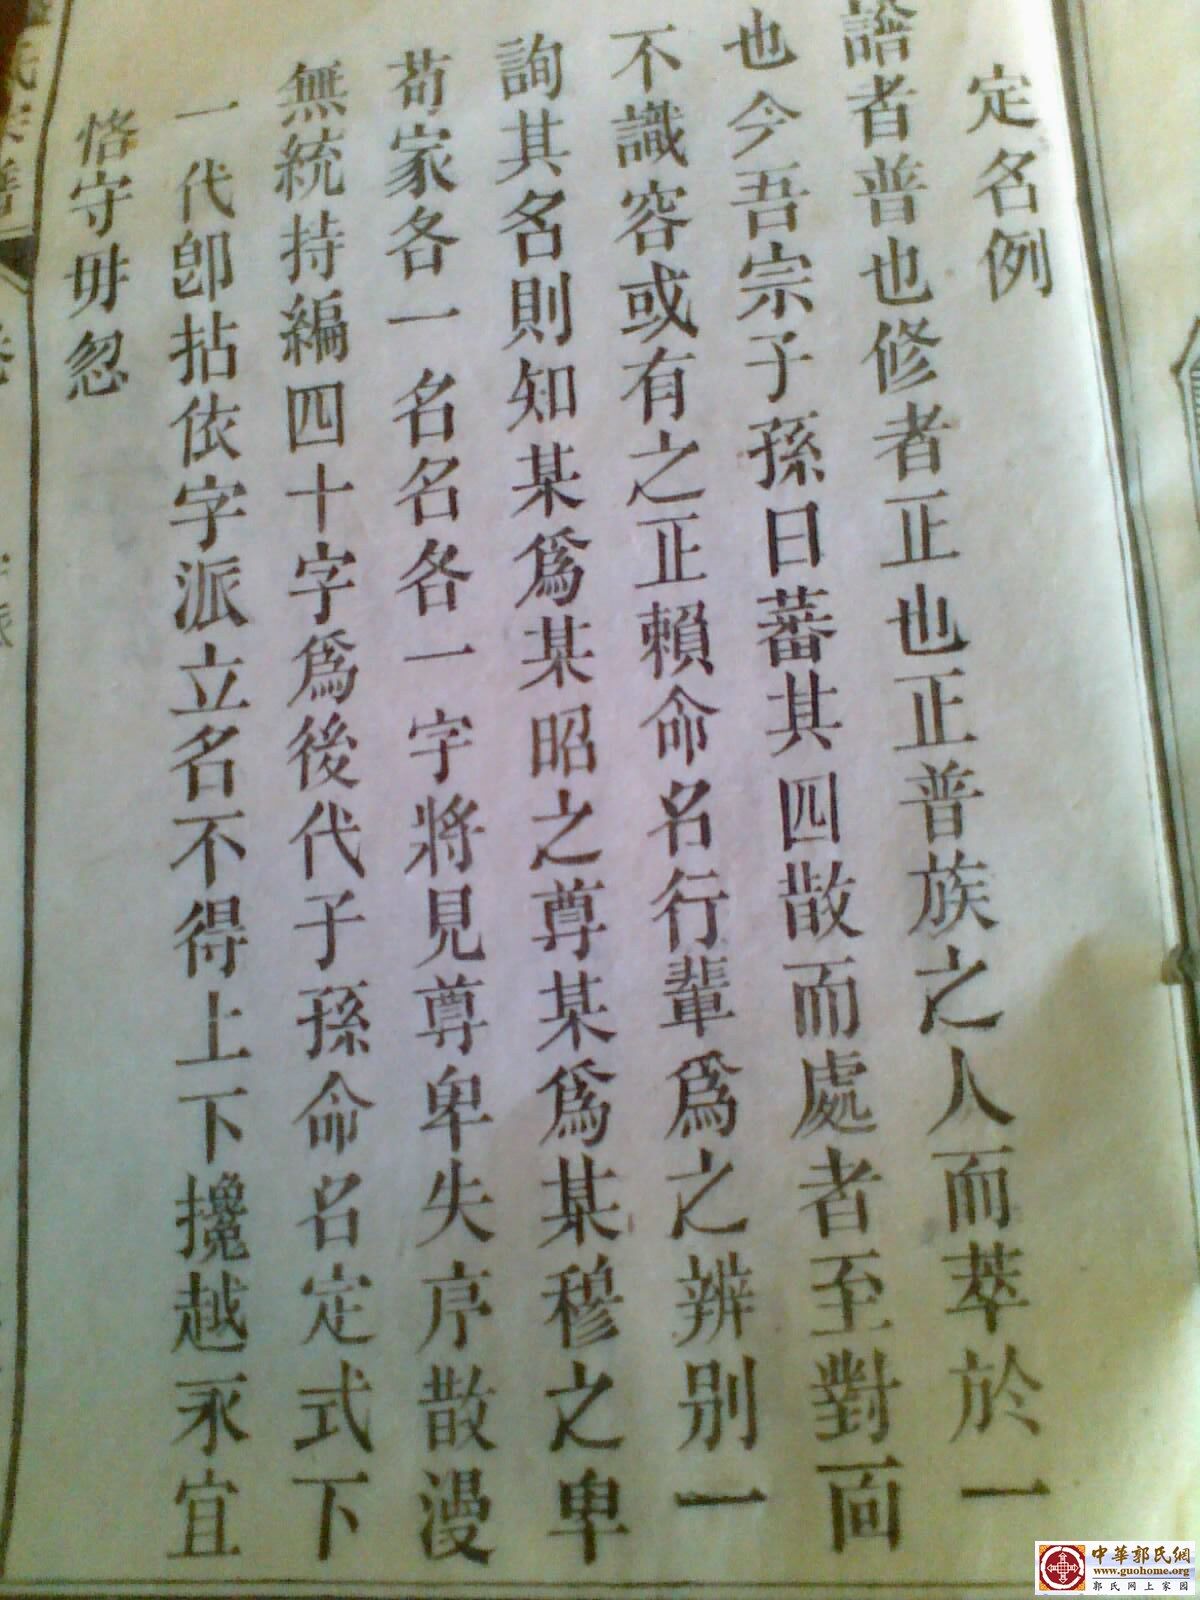 定名例
譜者普也修者正也正普族之人而萃於一
也今吾宗子孫日蕃其四散而處者至對面
不識容或有之正賴命名行輩爲之辨别一
詢其名則知某爲某昭之尊某爲某穆之卑
苟家各一名名各一字將見尊卑失序散漫
無統持編四十字爲後代子孫命名定式下
一代卽拈依字派立名不得上下攙越永宜
恪守毋忽
中華郭氏網
www.guohome.org
郭氏网上家园